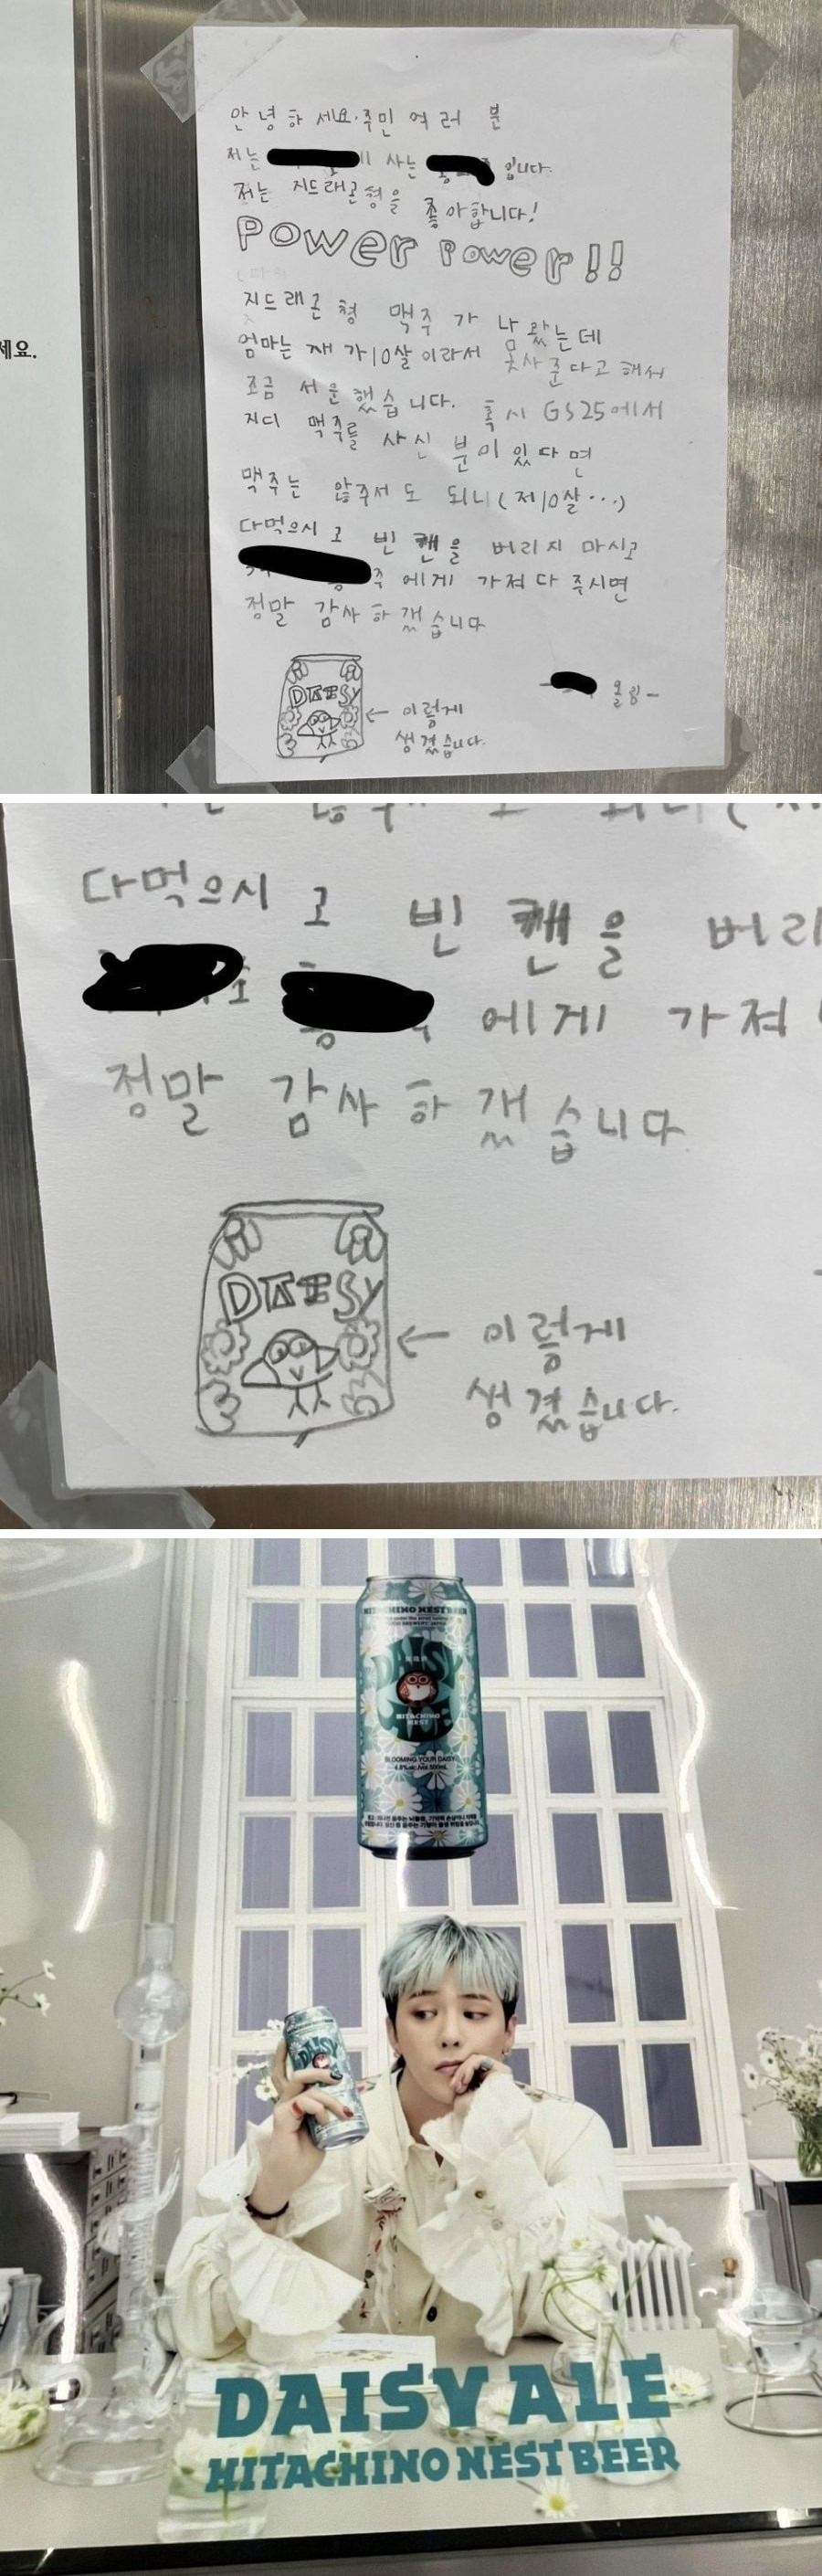 세요.
안녕하세요. 주민 여러분
저는 사는 입니다.
저는 지드래곤형을 좋아합니다!
POWER POWER!!
지드래곤 형 맥주가 나왔는데
엄마는 제가 10살이라서 못사준다고 해서
조금 서운했습니다. 혹시 GS25에서
지디 맥주를 사신 분이 있다면
맥주는 않주셔도 되니(제10살...)
다먹으시고 빈 캔을 버리지 마시고
에게 가져다 주시면
정말 감사하겠습니다
올림-
DAISY
← 이렇게
생겼습니다.
다먹으시고 빈 캔을 버리
에게 가져
정말 감사하겠습니다
DAISY
← 이렇게
생겼습니다.
HITACHINO NEST BEER
DAISY
HITACHINO
NEST
BLOOMING YOUR DAISY
4.8%alc./vol. 500mL
DAISY
DAISY ALE
HITACHINO NEST BEER